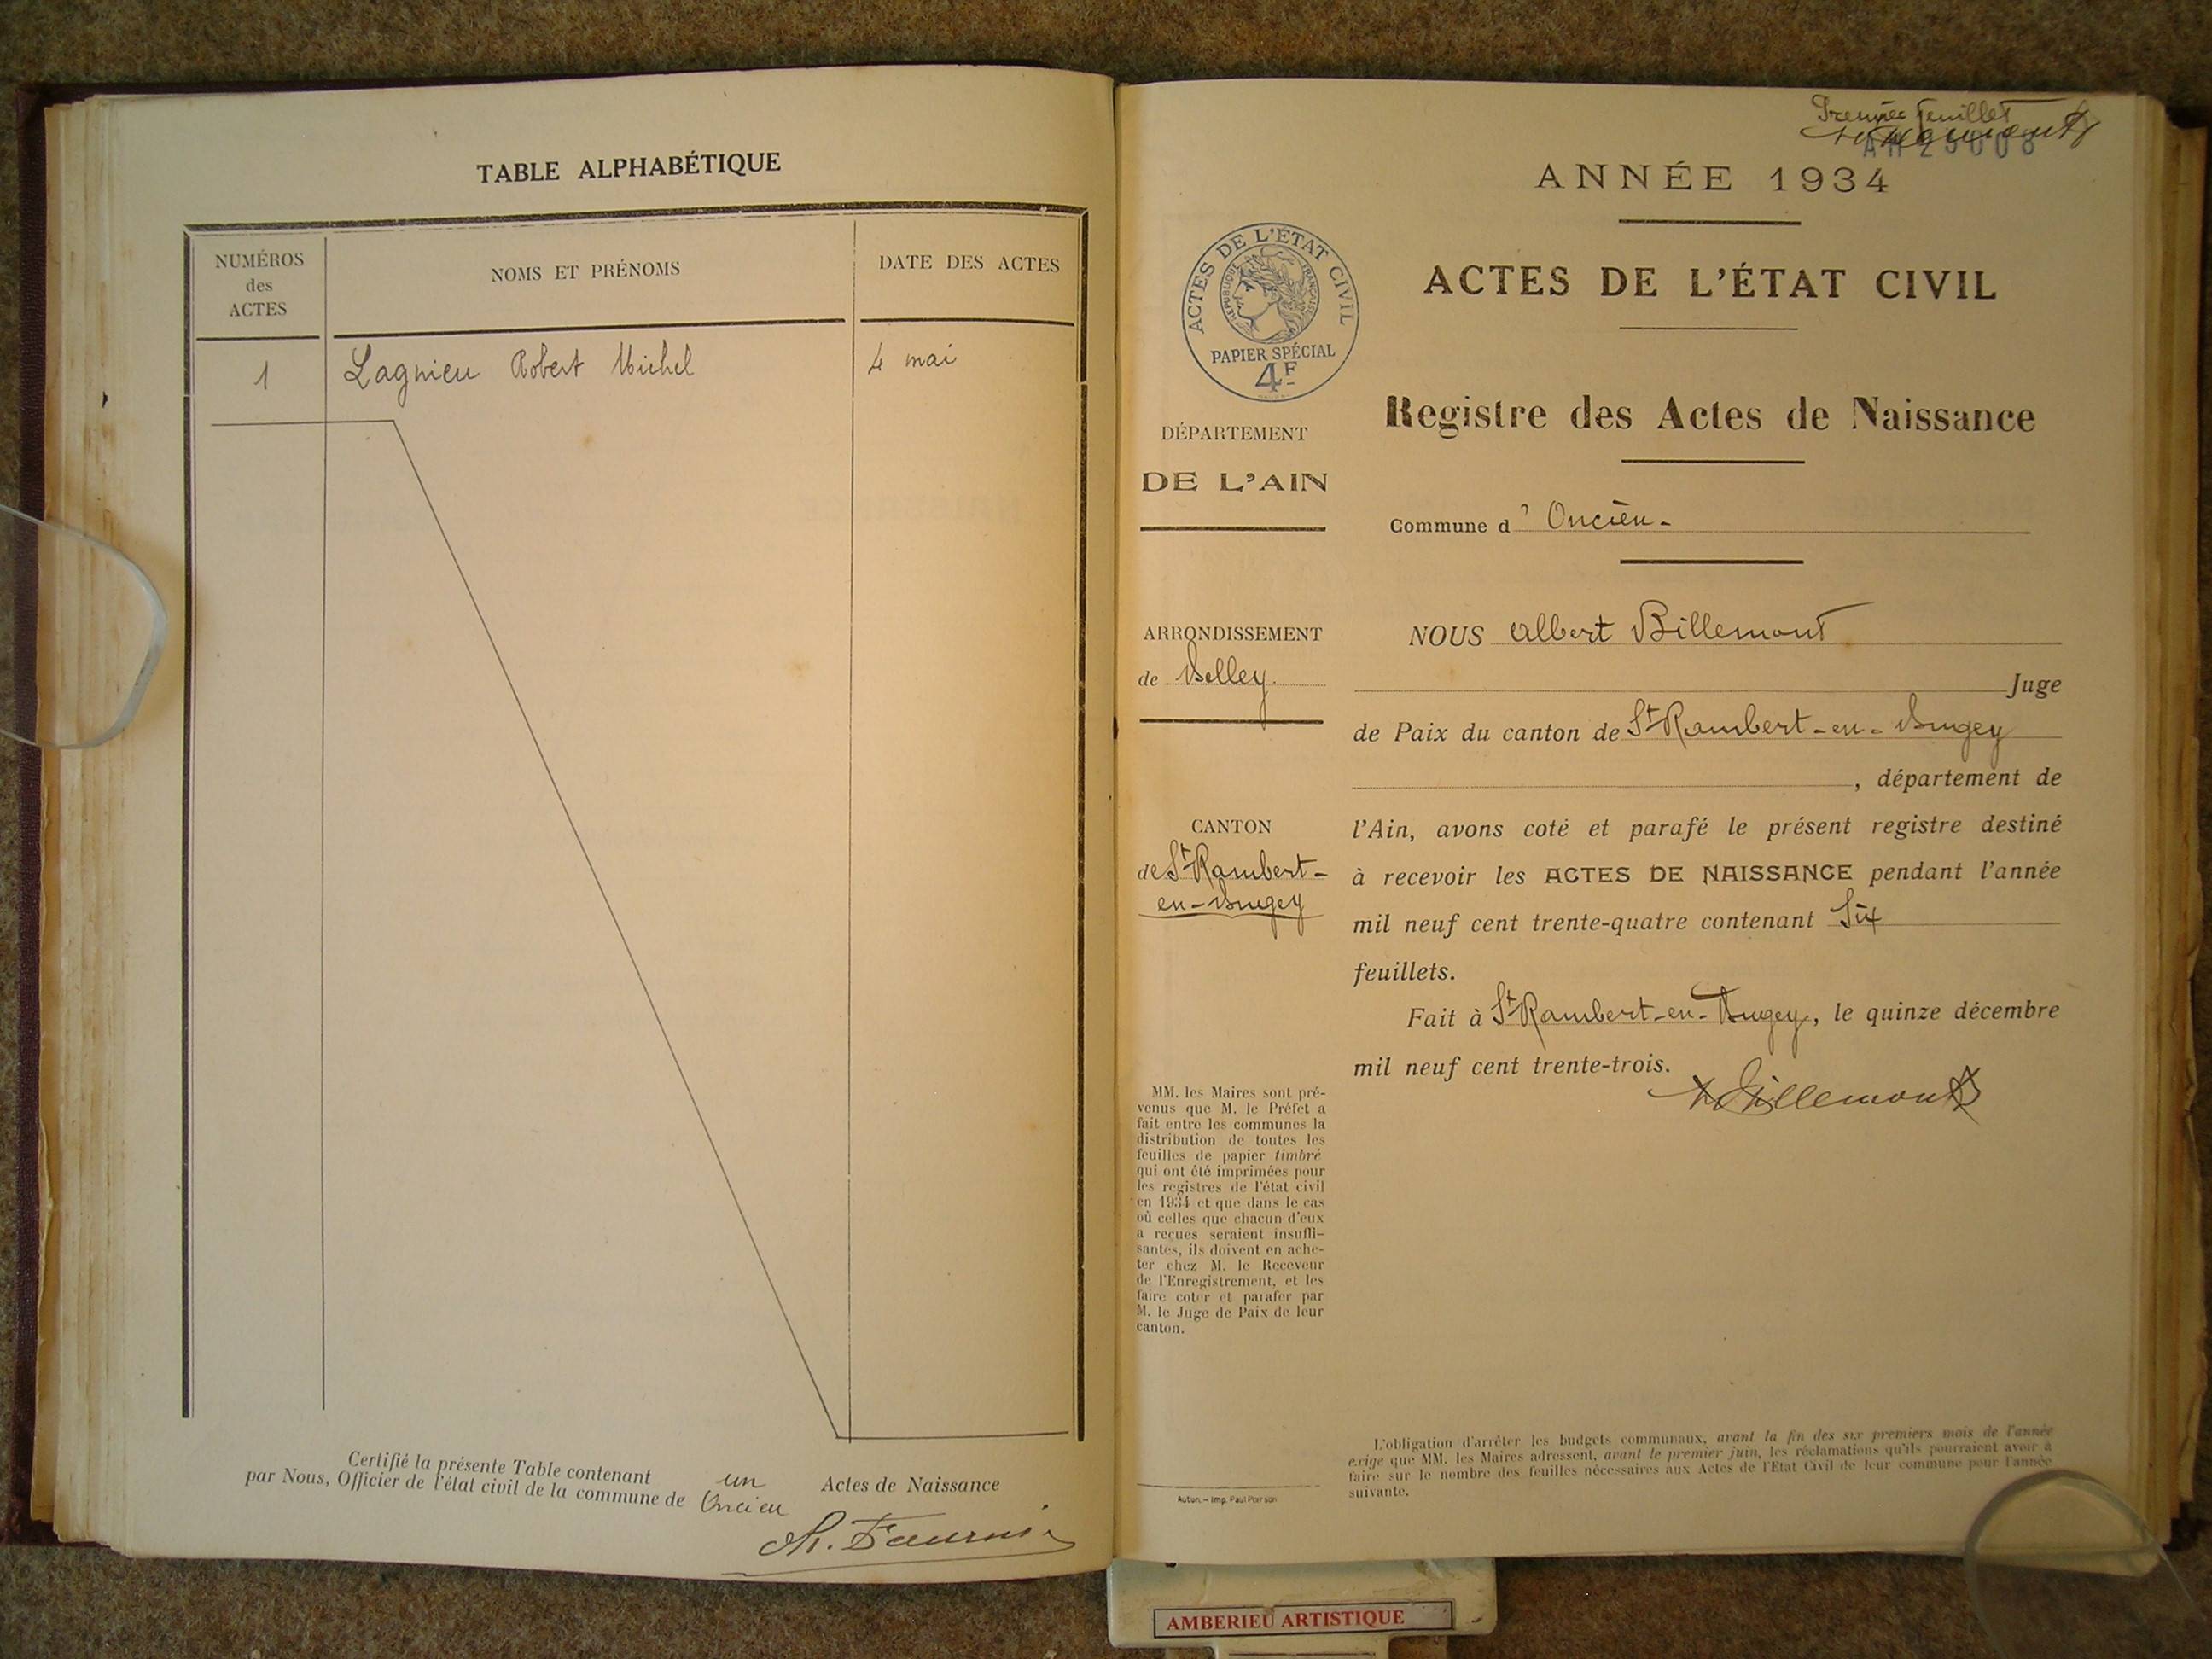 TABLE ALPHABÉTIQUE
NUMÉROS
des
ACTES
NOMS ET PRÉNOMS
DATE DES ACTES
1 Lagnieu Robert Michel 4 mai
Certifié la présente Table contenant un Actes de Naissance
par Nous, Officier de l'état civil de la commune de Oncieu
Premier feuillet
ANNÉE 1934
ACTES DE L'ÉTAT CIVIL
ACTES DE L'ÉTAT CIVIL
RÉPUBLIQUE FRANÇAISE
PAPIER SPÉCIAL
4F
Registre des Actes de Naissance
DÉPARTEMENT
DE L'AIN
Commune d' Oncieu-
ARRONDISSEMENT
de Belley.
CANTON
de St Rambert-
en-Bugey
NOUS Albert Billemont
Juge
de Paix du canton de St Rambert-en-Bugey
, département de
l'Ain, avons coté et parafé le présent registre destiné
à recevoir les ACTES DE NAISSANCE pendant l'année
mil neuf cent trente-quatre contenant Six
feuillets.
Fait à St Rambert-en-Bugey, le quinze décembre
mil neuf cent trente-trois.
Billemont
MM. les Maires sont pré-
venus que M. le Préfet a
fait entre les communes la
distribution de toutes les
feuilles de papier timbré
qui ont été imprimées pour
les registres de l'état civil
en 1934 et que dans le cas
où celles que chacun d'eux
a reçues seraient insuffi-
santes, ils doivent en ache-
ter chez M. le Receveur
de l'Enregistrement, et les
faire coter et parafer par
M. le Juge de Paix de leur
canton.
L'obligation d'arrêter les budgets communaux, avant la fin des six premiers mois de l'année
exige que MM. les Maires adressent, avant le premier juin, les réclamations qu'ils pourraient avoir à
faire sur le nombre des feuilles nécessaires aux Actes de l'Etat Civil de leur commune pour l'année
suivante.
Autun. – Imp. Paul
AMBERIEU ARTISTIQUE